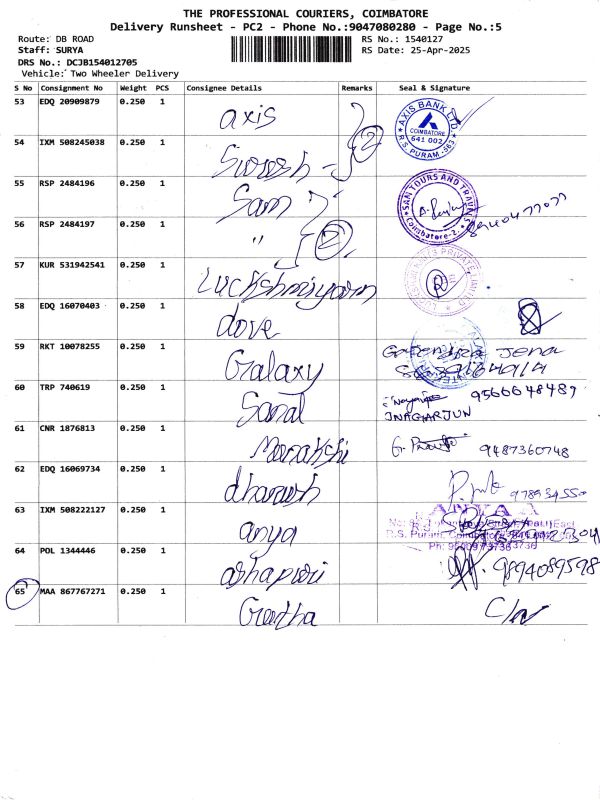 THE PROFESSIONAL COURIERS, COIMBATORE
Delivery Runsheet - PC2 - Phone No.:9047080280 - Page No.:5
Route: DB ROAD RS No.: 1540127
Staff: SURYA RS Date: 25-Apr-2025
DRS No.: DCJB154012705
Vehicle: Two Wheeler Delivery
S No Consignment No Weight PCS Consignee Details Remarks Seal & Signature
53 EDQ 20909879 0.250 1 axis 2 AXIS BANK LTD. COIMBATORE 641 002 R.S. PURAM
54 IXM 508245038 0.250 1 Suresh
55 RSP 2484196 0.250 1 Sam SAN TOURS AND TRAVELS Coimbatore-2.
56 RSP 2484197 0.250 1 " 2
57 KUR 531942541 0.250 1 Luckshmiyaram PRIVATE LIMITED
58 EDQ 16070403 0.250 1 dove
59 RKT 10078255 0.250 1 Galaxy Gajendra Jena
60 TRP 740619 0.250 1 Sanal 9566648489
JNAGARJUN
61 CNR 1876813 0.250 1 Manakshi G. 9487360748
62 EDQ 16069734 0.250 1 dharash P.
63 IXM 508222127 0.250 1 anya ANYA
R.S. Puram, Coimbatore
Ph:
64 POL 1344446 0.250 1 ashapuri 9894089598
65 MAA 867767271 0.250 1 Geetha